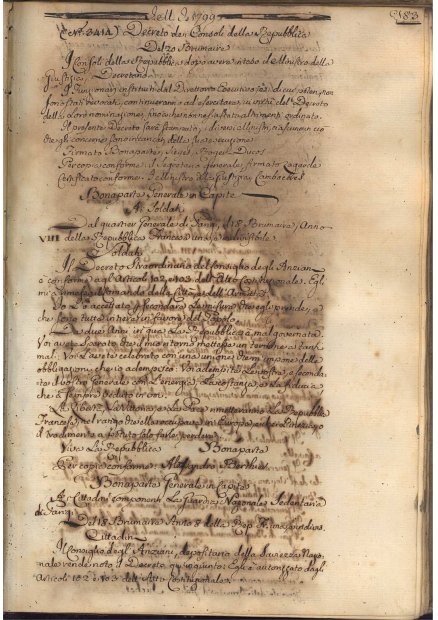 Dell' 1799
183
(N. 3414) Decreto dei Consoli della Repubblica
Del 20 Brumaire
I Consoli della Repubblica, dopo avere inteso il Ministro della
Giustizia, Decretano
I Funzionari instituiti dal Direttorio Esecutivo,
continueranno ad esercitare in virtù del Decreto
della loro nominazione, finché non ne sia stato altrimenti ordinato.
Il presente Decreto sarà stampato, i diversi Ministri
Firmato Bonaparte, Sieyes, Roger Ducos
Per copia conforme: il Segretario Generale, firmato Lagarde
Certificato conforme: Il Ministro della Giustizia, Cambaceres
Bonaparte Generale in Capite
Ai Soldati
Dal quartier Generale di Parigi, il 18 Brumaire, Anno
VIII della Repubblica Francese una, e indivisibile
Soldati
Il Decreto straordinario del Consiglio degli Anziani
è conforme agli Articoli 102, e 103 dell'Atto Costituzionale. Egli
mi della Città, e dell'Armata
Io l'ò accettato per secondare le misure, ch'egli prende, e
che sono tutte intere in favore del Popolo.
Da due Anni in qua la Repubblica è mal governata
Voi avete sperato, che il mio ritorno mettesse un termine a tanti
mali. Voi l'avete celebrato con una unione, che m'impone delle
obbligazioni, che io adempisco: Voi adempirete le vostre, e seconderete
il vostro Generale con l'energia, la costanza, e la fiducia
che ò sempre veduto in voi.
La Libertà, la Vittoria, e la Pace rimetteranno la Repubblica
Francese nel rango, che ella occupava in Europa, e che l'inerzia, o
il tradimento à potuto solo farle perdere.
Viva la Repubblica Bonaparte
Per copia conforme: Alessandro Berthier
Bonaparte Generale in Capite
Ai Cittadini componenti la Guardia Nazionale Sedentaria
di Parigi
Del 18 Brumaire Anno 8 della Rep. Fr. una, e indivis.
Cittadini
Il Consiglio degli Anziani, depositario della Saviezza Nazionale,
rende noto il Decreto qui giunto: Egli è autorizzato dagli
Articoli 102 e 103 dell'Atto Costituzionale.